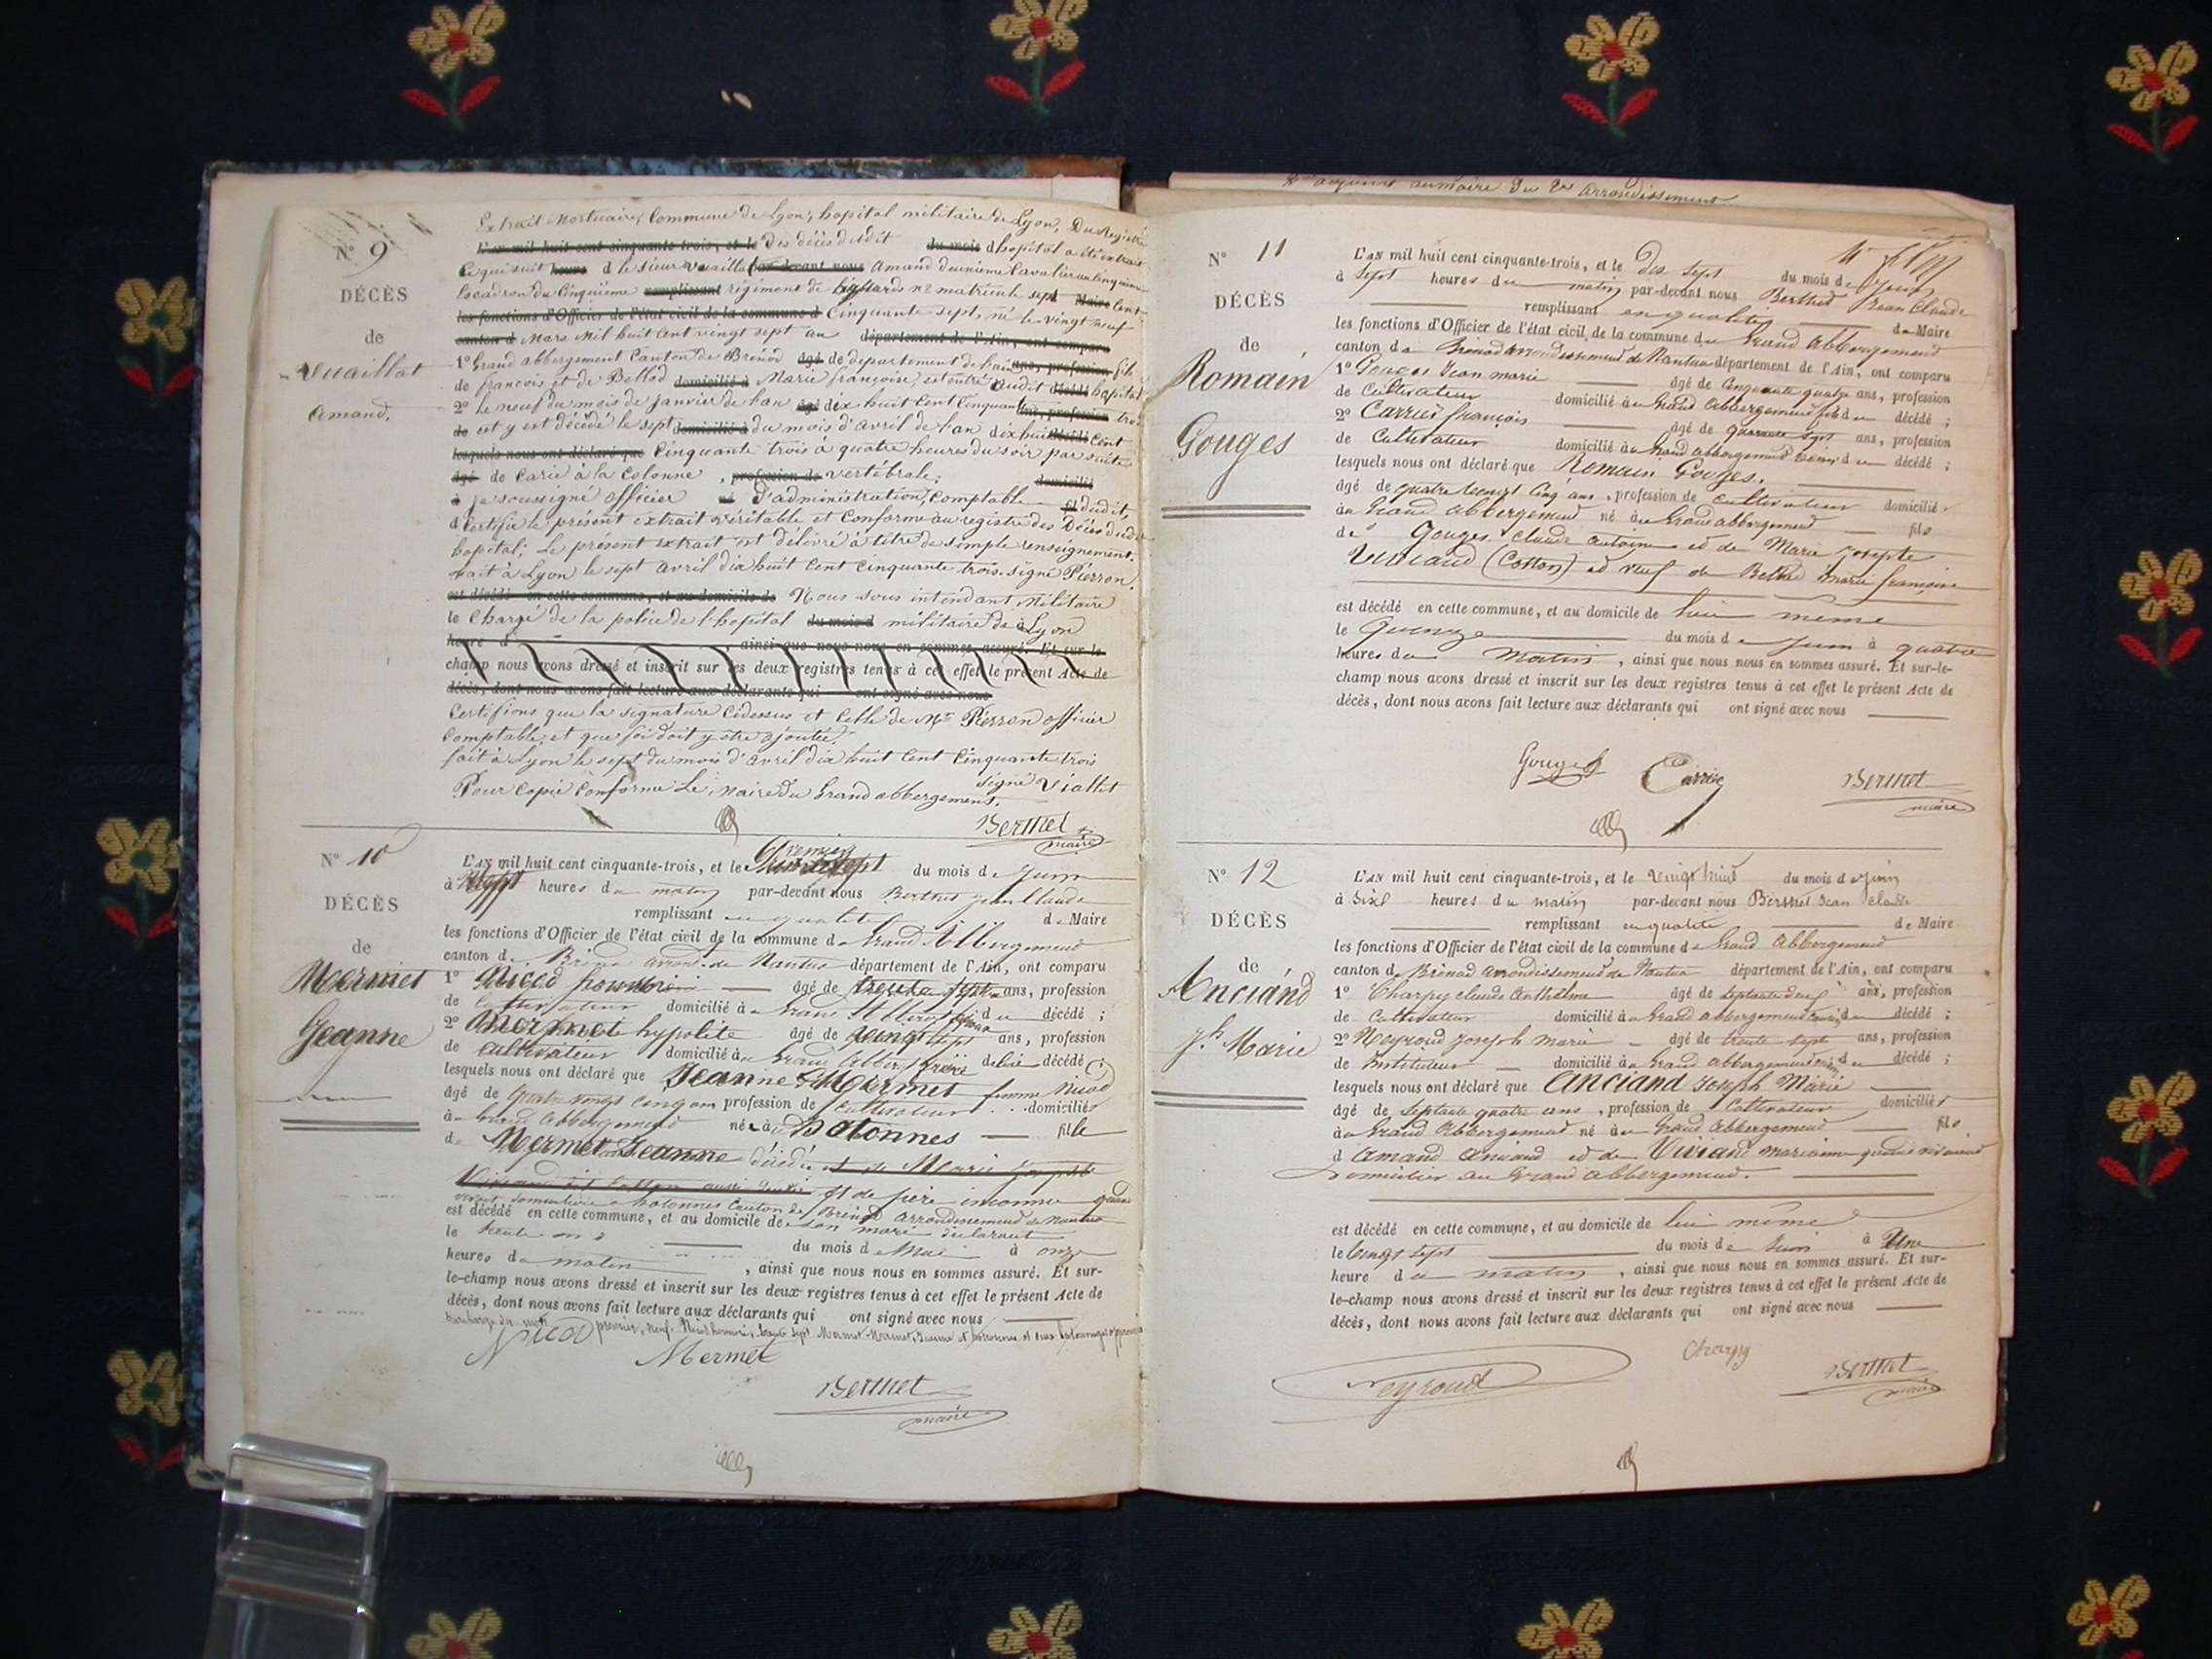 Extrait Mortuaire, Commune de Lyon, hopital militaire de Lyon, Du Registre
N° 9
L'an mil huit cent cinquante-trois, et le des décès dudit du mois d hopital a été extrait
ce qui suit heure d le sieur Vuaillat par-devant nous Amand deuxième Cavalier au Cinquième
Escadron du Cinquième remplissant régiment de n° matricule sept Maire Cent
DÉCÈS
les fonctions d'Officier de l'état civil de la commune d Cinquante sept, né le vingt neuf
de
canton d Mars Mil huit Cent vingt sept au département de l'Ain, ont comparu
Vuaillat
1° Grand abbergement Canton de Brénod âgé de département de l'ain ans, profession fils
de françois et de Bellod domicilié à Marie françoise, est entré audit décédé hopital
Amand.
2° le neuf du mois de janvier de l'an âgé dix huit Cent Cinquante ans, profession trois
de et y est décédé le sept domicilié à du mois d'avril de l'an dix huit décédé Cent
lesquels nous ont déclaré que Cinquante trois à quatre heures du soir par suite
âgé de Carie à la Colonne , profession de vertébrale; domicilié
à je soussigné officier né d'administration, Comptable fil dudit,
d Certifie le présent extrait véritable et Conforme au registre des Décès dudit
hopital; Le présent extrait est délivré à titre de simple renseignement.
fait à Lyon le sept avril dix huit Cent Cinquante trois. signé Pierron.
est décédé en cette commune, et au domicile de Nous sous intendant Militaire
le Chargé de la police de l'hopital du mois d militaire de à Lyon
heure d , ainsi que nous nous en sommes assuré. Et sur-le-
champ nous avons dressé et inscrit sur les deux registres tenus à cet effet le présent Acte de
décès, dont nous avons fait lecture aux déclarants qui ont signé avec nous
Certifions que la signature Cidessus est Celle de Mr Pierron officier
Comptable, et que foi doit y être ajoutée.
fait à Lyon le sept du mois d'avril dix huit Cent Cinquante trois
signé Viallet
Pour Copie Conforme Le Maire du Grand abbergement.
Berthet
maire
N° 10
premier
L'AN mil huit cent cinquante-trois, et le du mois de juin
à heures du matin par-devant nous Berthet jean Claude
DÉCÈS
remplissant en qualité de Maire
les fonctions d'Officier de l'état civil de la commune du Grand Abbergement
de
canton de Brénod arrond. de Nantua département de l'Ain, ont comparu
Mermet
1° Nicod âgé de trente sept ans, profession
de cultivateur domicilié à Grand du décédé ;
Geanne
2° Mermet hypolite âgé de vingt sept ans, profession
de cultivateur domicilié à Grand de la décédé ;
lesquels nous ont déclaré que Jeanne Mermet femme Nicod
âgé de quatre vingt cinq ans profession de cultivateur domicilié
à Grand abbergement né à hotonnes fille
de Mermet Jeanne décédée et de Marie
et de père inconnu quand
vivait à hotonnes Canton de Brénod arrondissement de Nantua
est décédé en cette commune, et au domicile de son mari déclarant
le trente un du mois de Mai à onze
heures du matin , ainsi que nous nous en sommes assuré. Et sur-
le-champ nous avons dressé et inscrit sur les deux registres tenus à cet effet le présent Acte de
décès, dont nous avons fait lecture aux déclarants qui ont signé avec nous
Nicod
Mermet
Berthet
maire
adjoint au maire du 2e Arrondissement
N° 11
L'AN mil huit cent cinquante-trois, et le dix sept du mois de Juin
à sept heures du matin par-devant nous Berthet Jean Claude
DÉCÈS
remplissant en qualité de Maire
les fonctions d'Officier de l'état civil de la commune du Grand Abbergement
de
canton de Brénod arrondissement de Nantua département de l'Ain, ont comparu
Romain
1° Gouges Jean marie âgé de Cinquante quatre ans, profession
de Cultivateur domicilié au Grand Abbergement fils du décédé ;
2° Carrier françois âgé de quarante sept ans, profession
Gouges
de Cultivateur domicilié au Grand abbergement voisin du décédé ;
lesquels nous ont déclaré que Romain Gouges.
âgé de quatre vingt Cinq ans, profession de cultivateur domicilié
au Grand abbergement né au Grand abbergement fils
de Gouges Claude antoine et de Marie Josepte
Viviand (Cotton) et veuf de Belled marie françoise
est décédé en cette commune, et au domicile de lui même
le Quinze du mois de Juin à quatre
heures du Matin , ainsi que nous nous en sommes assuré. Et sur-le-
champ nous avons dressé et inscrit sur les deux registres tenus à cet effet le présent Acte de
décès, dont nous avons fait lecture aux déclarants qui ont signé avec nous
Gouges
Carrier
Berthet
maire
N° 12
L'AN mil huit cent cinquante-trois, et le vingt huit du mois de juin
à Six heures du matin par-devant nous Berthet Jean Claude
DÉCÈS
remplissant en qualité de Maire
les fonctions d'Officier de l'état civil de la commune de Grand Abbergement
de
canton de Brénod arrondissement de Nantua département de l'Ain, ont comparu
Anciand
1° Charpy claude Anthelme âgé de septante deux ans, profession
de Cultivateur domicilié au Grand abbergement voisin du décédé ;
2° Neyroud Joseph marie âgé de trente sept ans, profession
Jh Marie
de Instituteur domicilié au Grand abbergement voisin du décédé ;
lesquels nous ont déclaré que Anciand Joseph Marie
âgé de septante quatre ans, profession de Cultivateur domicilié
au Grand Abbergement né au Grand Abbergement fils
d'Amand Anciand et de Viviand marianne quand vivaient
Domicilier au Grand abbergement.
est décédé en cette commune, et au domicile de lui même
le vingt sept du mois de Juin à Une
heure du matin , ainsi que nous nous en sommes assuré. Et sur-
le-champ nous avons dressé et inscrit sur les deux registres tenus à cet effet le présent Acte de
décès, dont nous avons fait lecture aux déclarants qui ont signé avec nous
Charpy
Neyroud
Berthet
maire